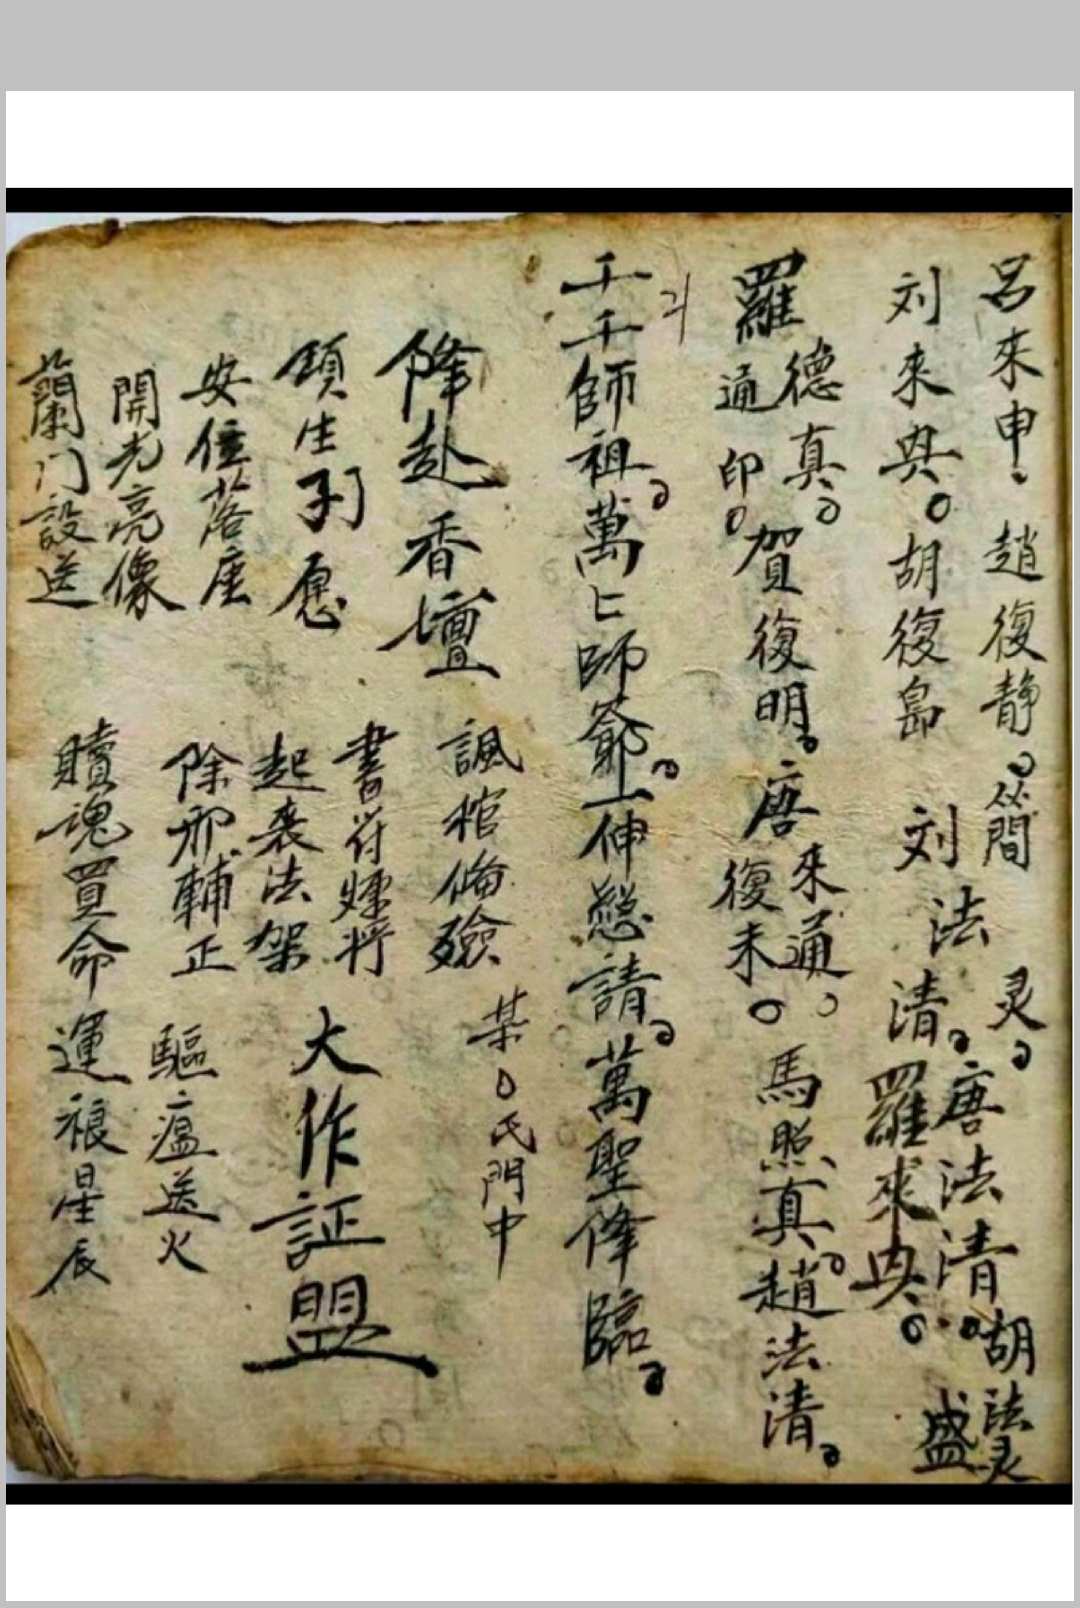 呂來申 趙復静 間灵
刘來典 胡復 刘法清 唐法清 胡法灵
羅來典 盛
羅德真 通印 賀復明 唐來通 復未 馬照真 趙法清
千千師祖 萬〻師爺 上伸懇請 萬聖降臨
降赴香壇 諷棺僃殮 某〇氏門中
生 愿 書符 将 大作証盟
安位落座 起裝法架
開光亮像 除邪輔正 驅瘟送火
門設送 贖魂買命 運 星辰